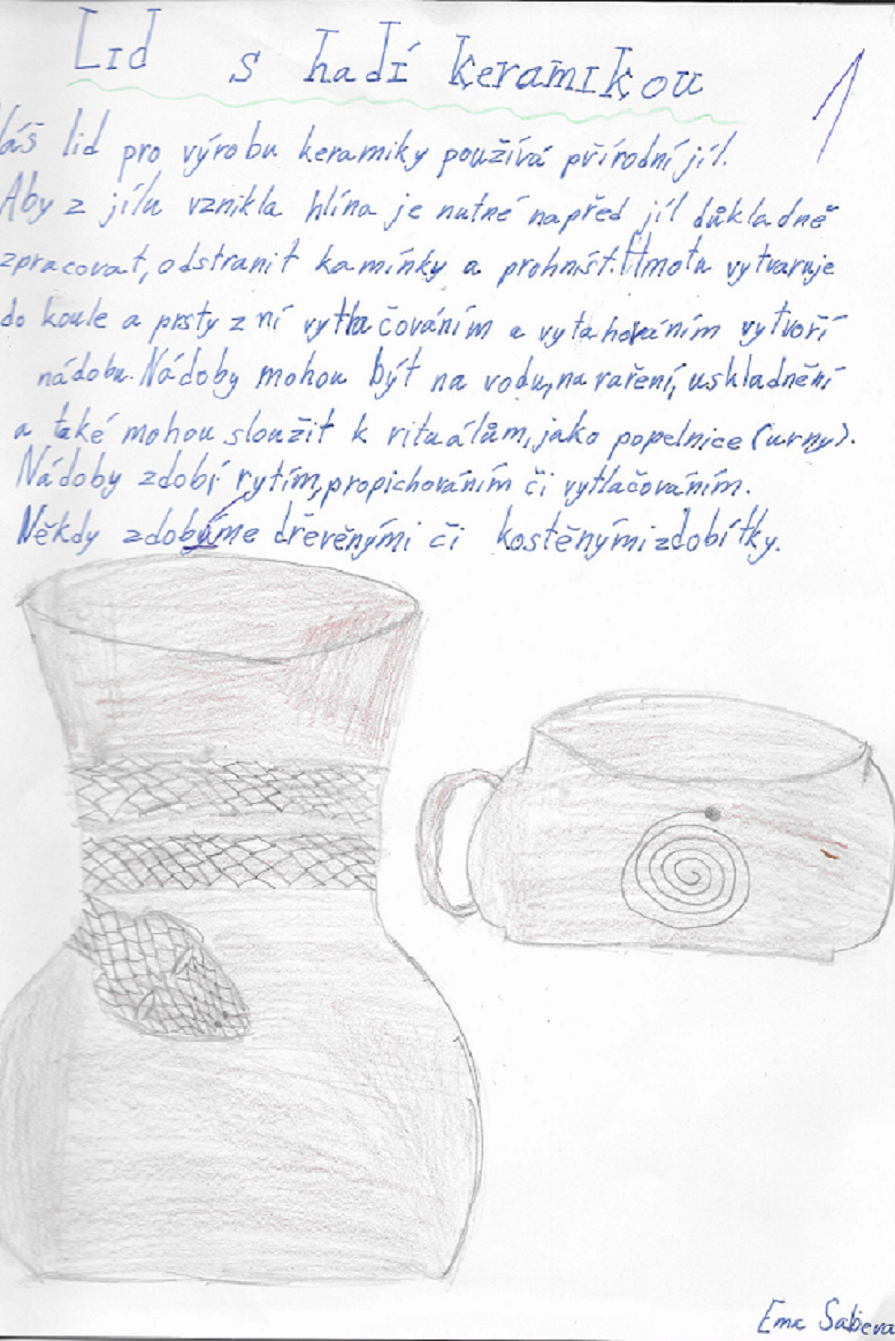 Lid s hadí keramikou
1
áš lid pro výrobu keramiky používá přírodní jíl.
Aby z jílu vznikla hlína je nutné napřed jíl důkladně
zpracovat, odstranit kamínky a prohníst. Hmotu vytvaruje
do koule a prsty z ní vytlačováním a vytahováním vytvoří
nádobu. Nádoby mohou být na vodu, na vaření, uskladnění
a také mohou sloužit k rituálům, jako popelnice (urny).
Nádoby zdobí rytím, propichováním či vytlačováním.
Někdy zdobíme dřevěnými či kostěnými zdobítky.
Ema Sabeva